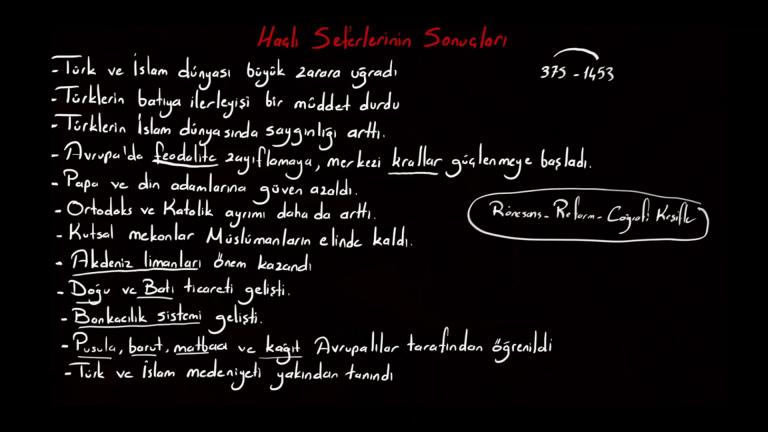 Haçlı Seferlerinin Sonuçları
375 - 1453
- Türk ve İslam dünyası büyük zarara uğradı
- Türklerin batıya ilerleyişi bir müddet durdu
- Türklerin İslam dünyasında saygınlığı arttı.
- Avrupa'da feodalite zayıflamaya, merkezi krallar güçlenmeye başladı.
- Papa ve din adamlarına güven azaldı.
- Ortodoks ve Katolik ayrımı daha da arttı.
Rönesans - Reform - Coğrafi Keşifle
- Kutsal mekanlar Müslümanların elinde kaldı.
- Akdeniz limanları önem kazandı
- Doğu ve Batı ticareti gelişti.
- Bankacılık sistemi gelişti.
- Pusula, barut, matbaa ve kağıt Avrupalılar tarafından öğrenildi
- Türk ve İslam medeniyeti yakından tanındı